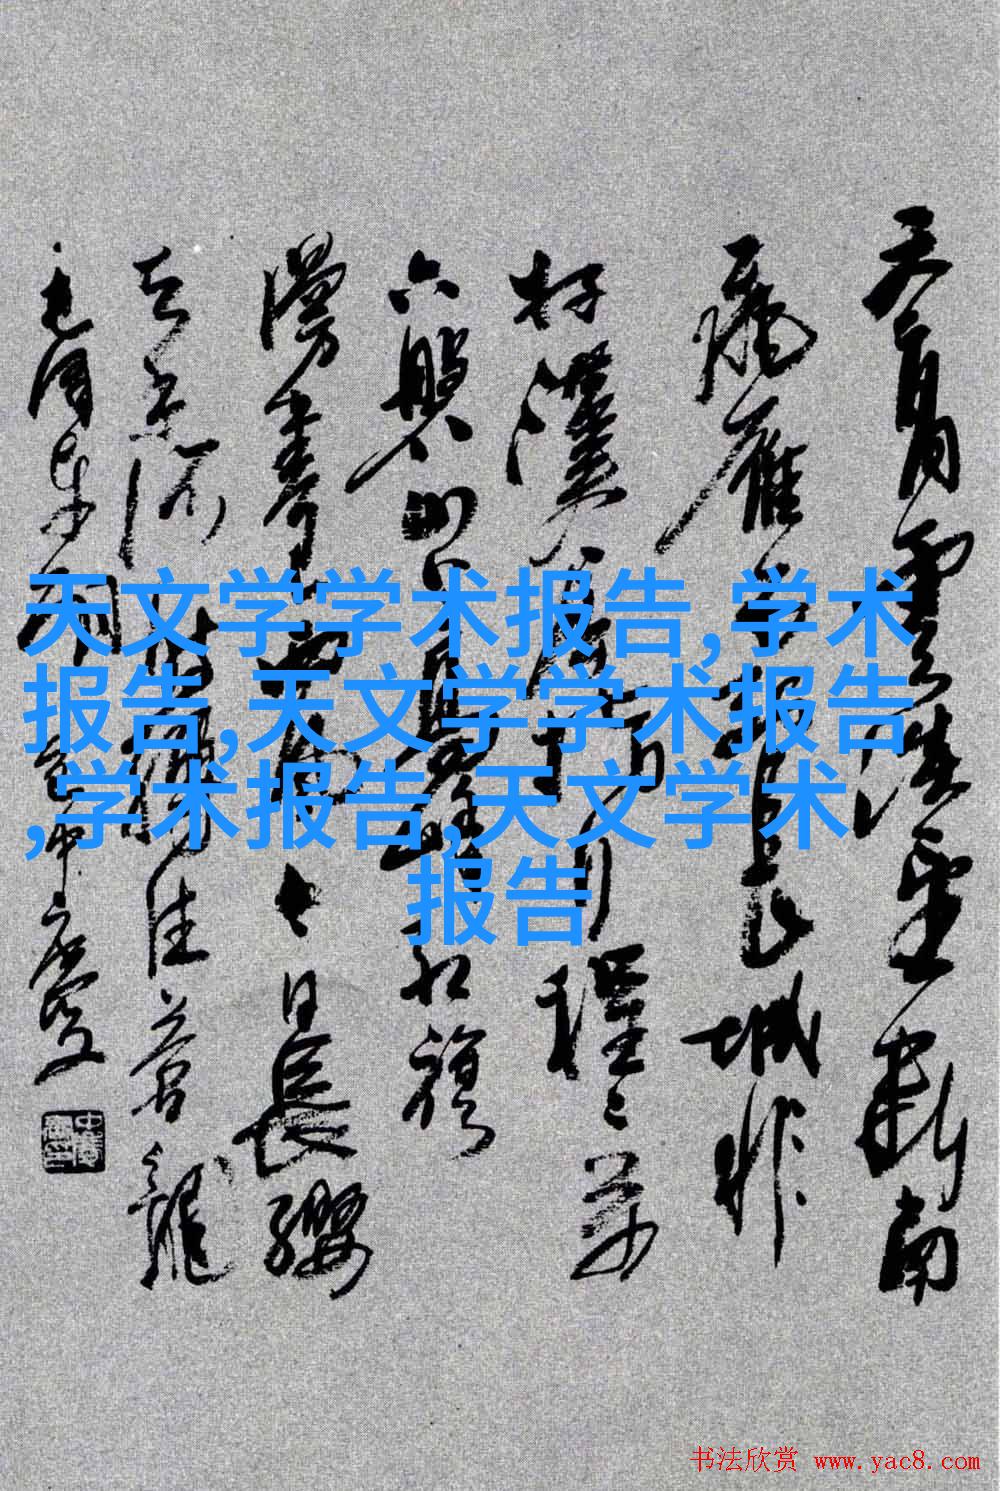 天文学学术报告,学术
报告,天文学学术报告
,学术报告,天文学术
报告
天高雲淡望断南
飛雁不到长城非
好漢屈指行程二万
六盤山上高峰红旗
漫卷西风今日長缨
在手何时缚住苍龙
毛泽东词
书法欣赏 www.yac8.com